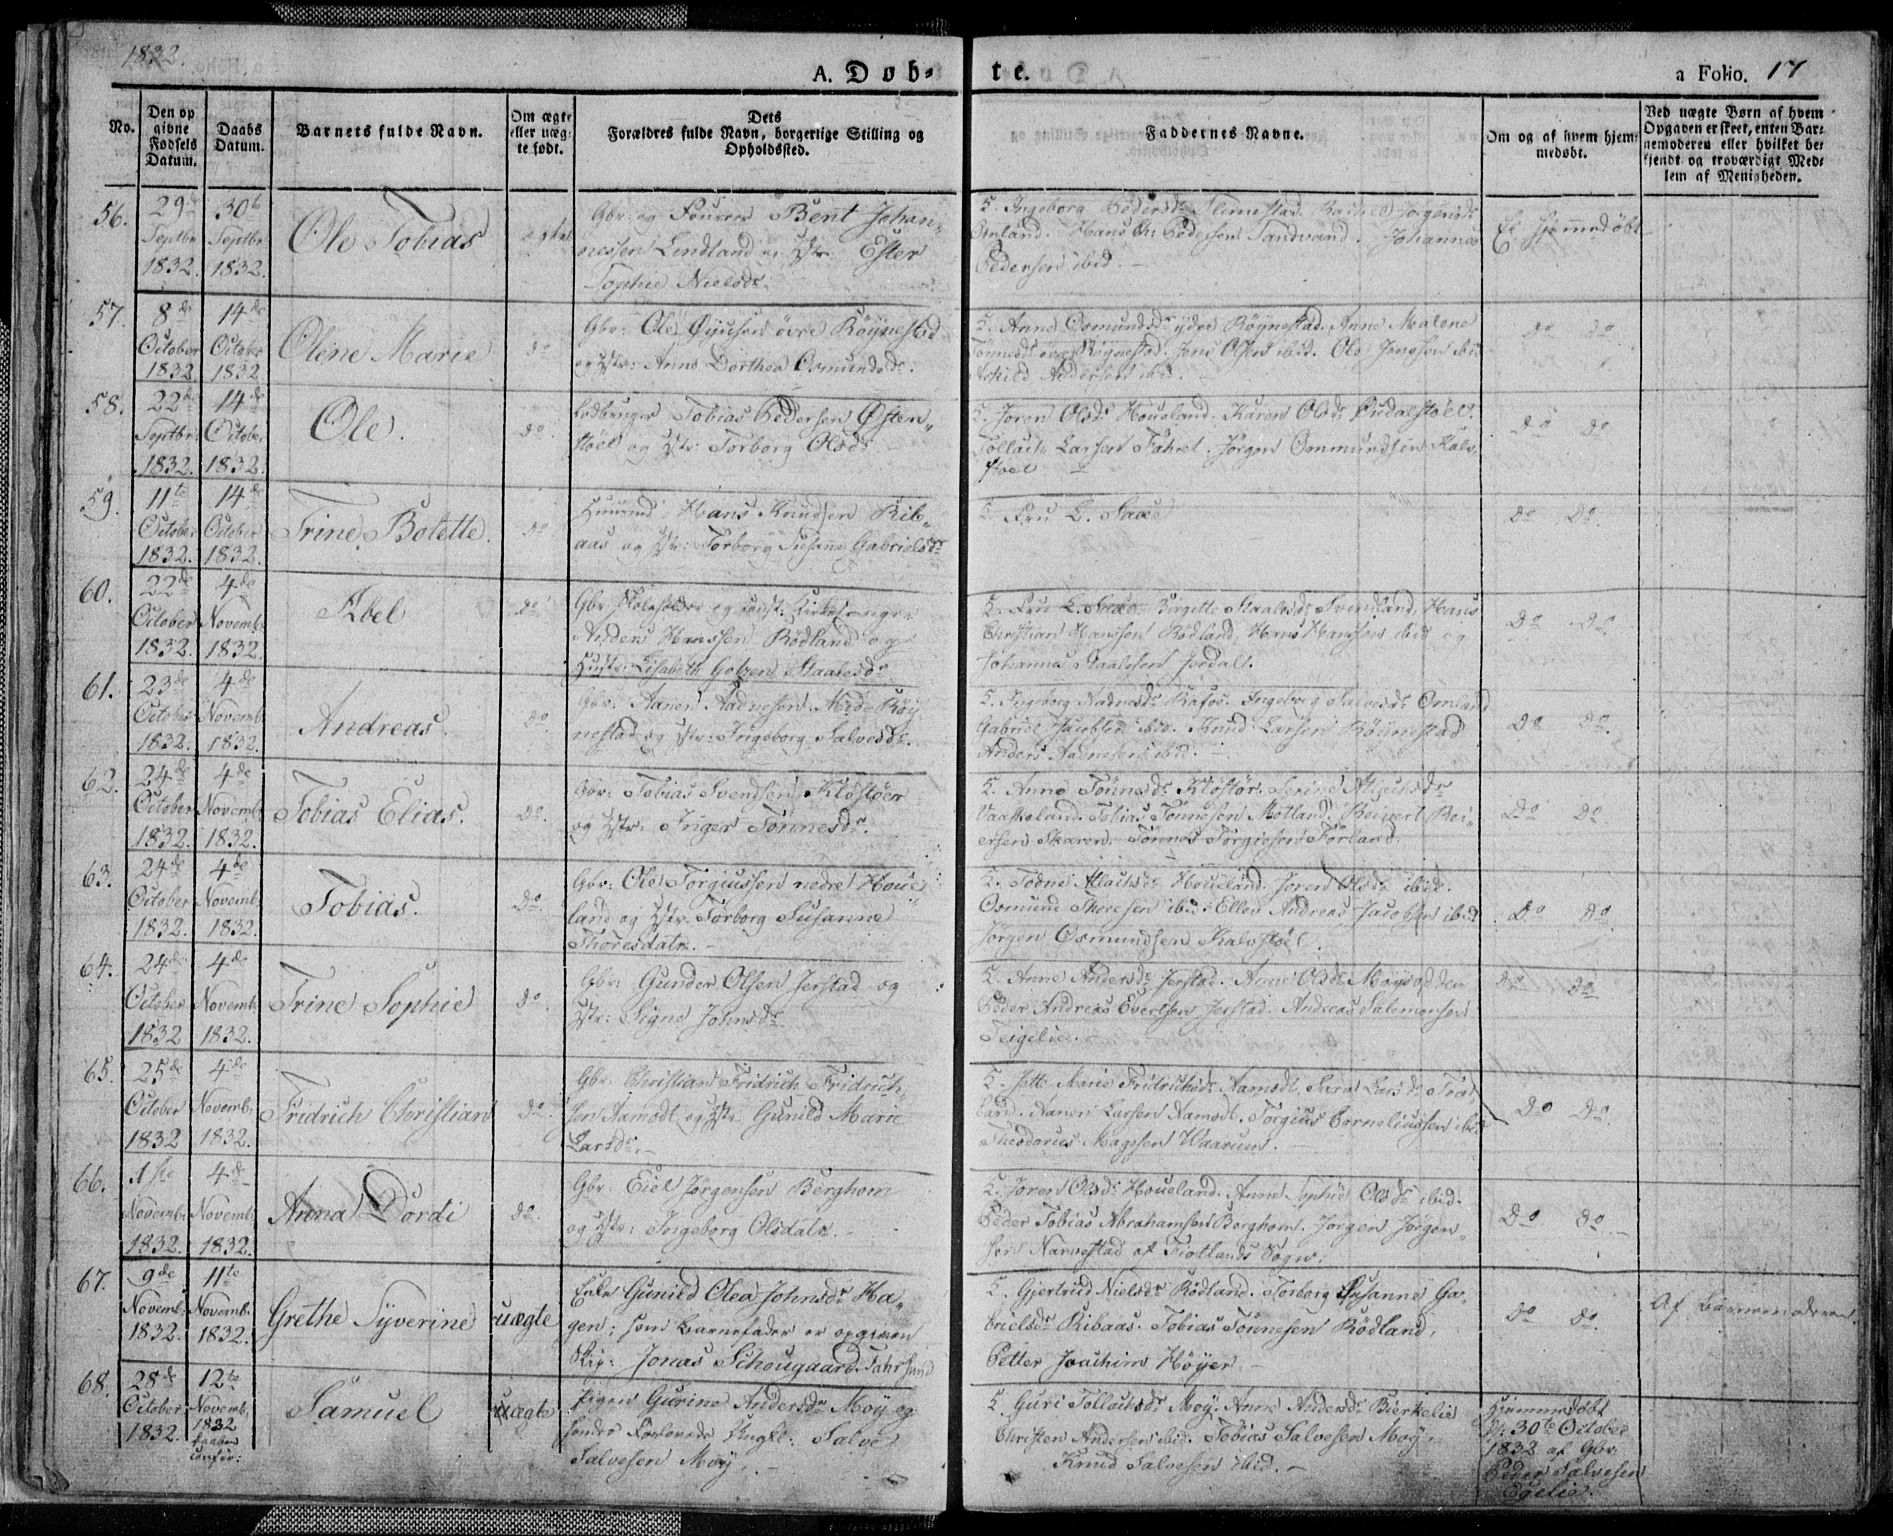 1832.
A. Döb-
te.
a Folio. 17
No.
Den op
givne
Fødsels
Datum.
Daabs
Datum.
Barnets fulde Navn.
Om ægte
eller uæg-
te født.
Dets
Forældres fulde Navn, borgerlige Stilling og
Opholdssted.
Faddernes Navne.
Om og af hvem hjem-
medøbt.
Ved uægte Børn af hvem
Opgaven er skeet, enten Bar-
nemoderen eller hvilket be-
kjendt og troværdigt Med-
lem af Menigheden.
56.
29de
Septbr
1832.
30te
Septbr
1832.
Ole Tobias
ægte
Gbr. og Fourer Bent Johan-
nessen Lindland og Hstr. Ester
Sophie Nielsdr.
F. Ingeborg Pedersdr Rachel Jørgensdr
Omland. Hans Chr. Pedersen Sandvand. Johannes
Pedersen ibid.
Ei hjemmedøbt
57.
8de
October
1832
14de
October
1832
Olene Marie
do
Gbr: Ole øvre Röynestad
og Hstr: Anne Dorthea Osmundsdr.
F. Anne Osmundsdr ydre Röynestad. Anne Malene
Tönnesdr øvre Röynestad. Jens Olsen ibid. Ole Jensen ibid
Askild Andersen ibid.
do do
58.
22de
Septbr:
1832.
14de
October
1832.
Ole.
do.
Ledbruger Tobias Pedersen Østen-
støel og Hstr: Torborg Olsdr.
F. Joren Olsdr Houeland. Karen Olsdr
Tollach Larsen Jørgen Ommundsen Kalv-
støel
do do
59.
11te
October
1832.
14de
October
1832.
Trine Bolette.
do
Huusmd. Hans Knudsen Rib-
aas og Hstr: Torborg Susanne Gabrielsdr
F. Fru L.
do do.
60.
22de
October
1832.
4de
Novemb:
1832.
Abel
do
Gbr. Skoleholder og const. Kirkesanger
Anders Hanssen Rödland og
Hustr: Lisabeth Staalesdr
F. Fru L. Birgitte Staalesdr Svindland, Hans
Christian Hanssen Rödland, Hans Hanssen ibid og
Johannes Staalesen Jerdal.
do do.
61.
23de
October
1832.
4de
Novemb:
1832.
Andreas.
do.
Gbr. Aanen Aadnesen Mid-Röy-
nestad og Hstr: Ingeborg Salvesdr.
F. Ingeborg Aadnesdr Rafos. Ingeborg Salvesdr Omland
Gabriel Jacobsen ibid. Knud Larsen Röynestad
Anders Aadnesen ibid.
do do.
62.
24de
October
1832.
4de
Novemb:
1832.
Tobias Elias.
do.
Gbr: Tobias Svendsen Klöstöer
og Hstr: Inger Tönnesdr.
F. Anne Tönnesdr Klöstör. Serine
Tobias Tönnesen Motland. Reinert Rei-
ersen Skaren. Tönnes Torgiersen Förland.
do do.
63.
24de
October
1832.
4de
Novemb:
1832.
Tobias.
do.
Gbr: Ole Torgiussen nedre Houe-
land og Hstr. Torborg Susanne
Thoresdatr.
F. Houeland. Joren Olsdr ibid.
Osmund Thoresen ibid. Ellen Andreas Jacobsen ibid
Jørgen Osmundsen Kalvstöel.
do do.
64.
24de
October
1832
4de
Novemb:
1832.
Trine Sophie
do.
Gbr: Gunder Olsen Jerstad og
Hstr: Signe Johnsdr
F. Anne Andersdr Jerstad. Anne Olsdr Moysodden
Peder Andreas Evertsen Jerstad. Andreas Salemonsen
Teigelie.
do do
65.
25de
October
1832
4de
Novemb:
1832.
Fridrich Christian
do.
Gbr. Christian Fridrich Fridrich-
sen Aamodt og Hstr. Gunild Marie
Larsdr.
F. Jette Marie Fridrichsdr Aamodt. Sara Larsdr Træt-
land. Aanen Larsen Aamodt. Torgius Corneliussen ibid
Theodorius Magssen Waarum.
do do.
66.
1ste
Novemb:
1832.
4de
Novemb:
1832.
Anna Dordi
do.
Gbr. Eiel Jørgensen Berghom
og Hstr: Ingeborg Olsdatr.
F. Joren Olsdr Houeland. Anne Sophie Olsdr ibid.
Peder Tobias Abrahamsen Berghom. Jørgen Jørgen-
sen Narvestad af Fiotlands Sogn.
do do.
67.
9de
Novemb:
1832.
11te
Novemb:
1832.
Grethe Syverine
uægte
Enke Gunild Olea Johnsdr Ha-
gen; som Barnefader er opgiven
Skip: Jonas Schougaard. Fahrsund
F. Gjertrud Nielsdr Rödland. Torborg Susanne Ga-
brielsdr Ribaas. Tobias Tönnesen Rödland,
Petter Joachim Höyer.
do do.
Af Barnemoderen.
68.
28de
October
1832.
12te
Novemb.
1832
Samuel
uægte
Pigen Gurine Andersdr Moy og
hendes Forlovede Ungkl: Salve
Salvesen Moy.
F. Guri Tollachsdr Moy. Anne Andersdr Bierkelie
Christen Andersen ibid. Tobias Salvesen Moy.
Knud Salvesen ibid.
Hjemmedøbt
d: 30te October
1832 af Gbr.
Peder Salvesen
Egelie.